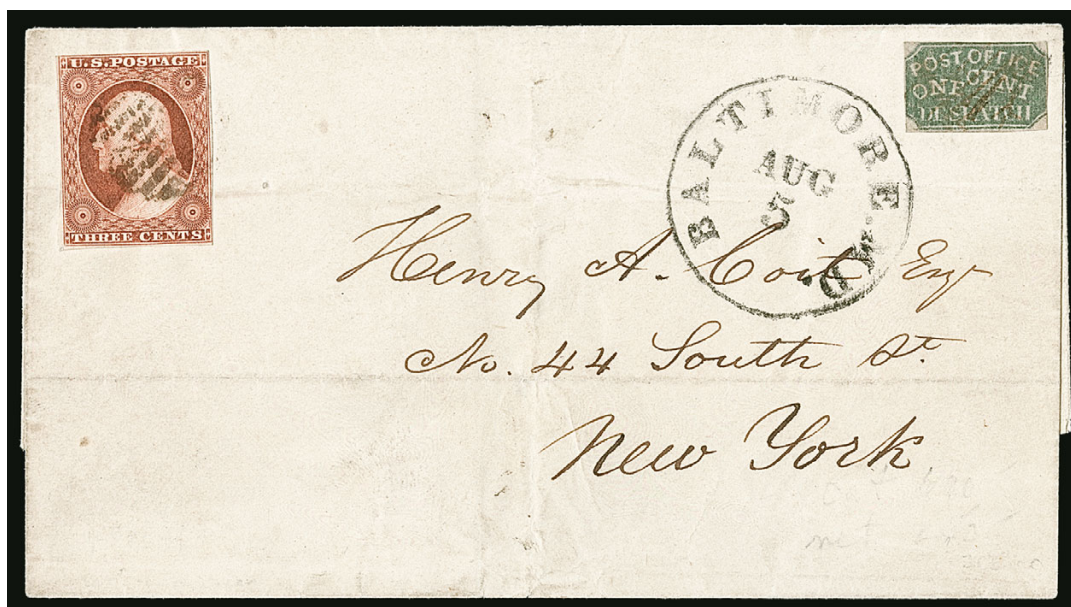 U.S. POSTAGE
THREE CENTS
POST OFFICE
ONE CENT
DESPATCH
BALTIMORE MD.
AUG
5
Henry A. Coit Esqr
No. 44 South St.
New York